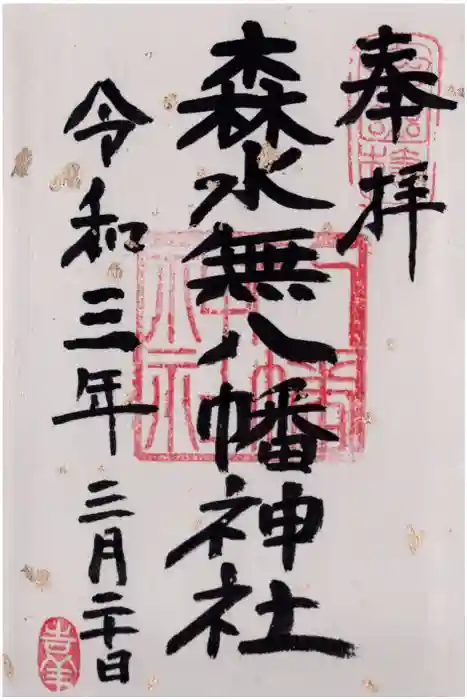 奉拝
森水無八幡神社
令和三年三月二十日